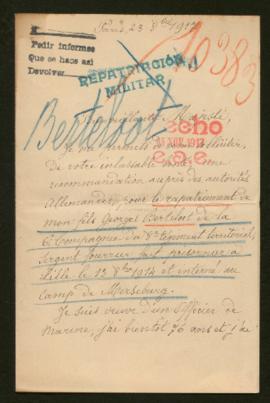 Paris, 23 8bre 1917
10383
Pedir informes
Que se hace así
Devolver
REPATRIACION
MILITAR
Berteloot
Majesté,
hecho
NOV. 1917
Je
solliciter
De votre inlassable bonté une
recommandation auprès des autorités
Allemandes, pour le rapatriement de
mon fils Georges Berteloot de la
6e Compagnie du 8e régiment territorial,
Sergent fourrier, fait prisonnier à
Lille le 13 8bre 1914 et interné au
camp de Merseburg.
Je suis veuve d'un Officier de
Marine, j'ai bientôt 76 ans et j'ai